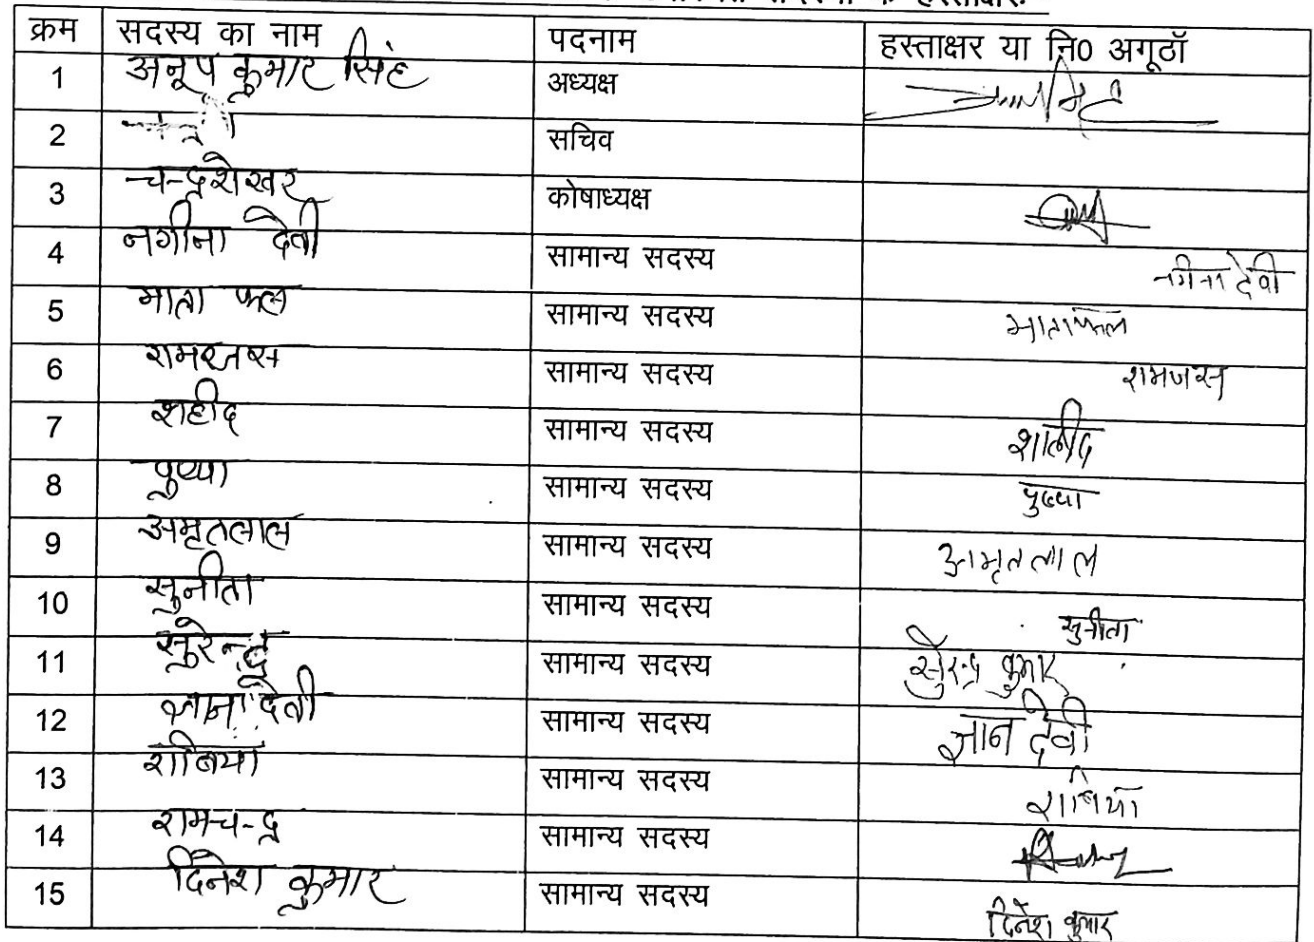 के हस्ताक्षर
क्रम सदस्य का नाम पदनाम हस्ताक्षर या नि0 अगूठॉ
1 अनूप कुमार सिंह अध्यक्ष
2 सचिव
3 चन्द्रशेखर कोषाध्यक्ष
4 नगीना देवी सामान्य सदस्य नगीना देवी
5 माता फल सामान्य सदस्य माताफल
6 सामान्य सदस्य रामजस
7 शहीद सामान्य सदस्य
8 पुष्पा सामान्य सदस्य पुष्पा
9 अमृतलाल सामान्य सदस्य अमृतलाल
10 सुनीता सामान्य सदस्य सुनीता
11 सुरेन्द्र सामान्य सदस्य कुमार
12 देवी सामान्य सदस्य ज्ञान देवी
13 राबियाँ सामान्य सदस्य राबियाँ
14 रामचन्द्र सामान्य सदस्य
15 दिनेश कुमार सामान्य सदस्य दिनेश कुमार